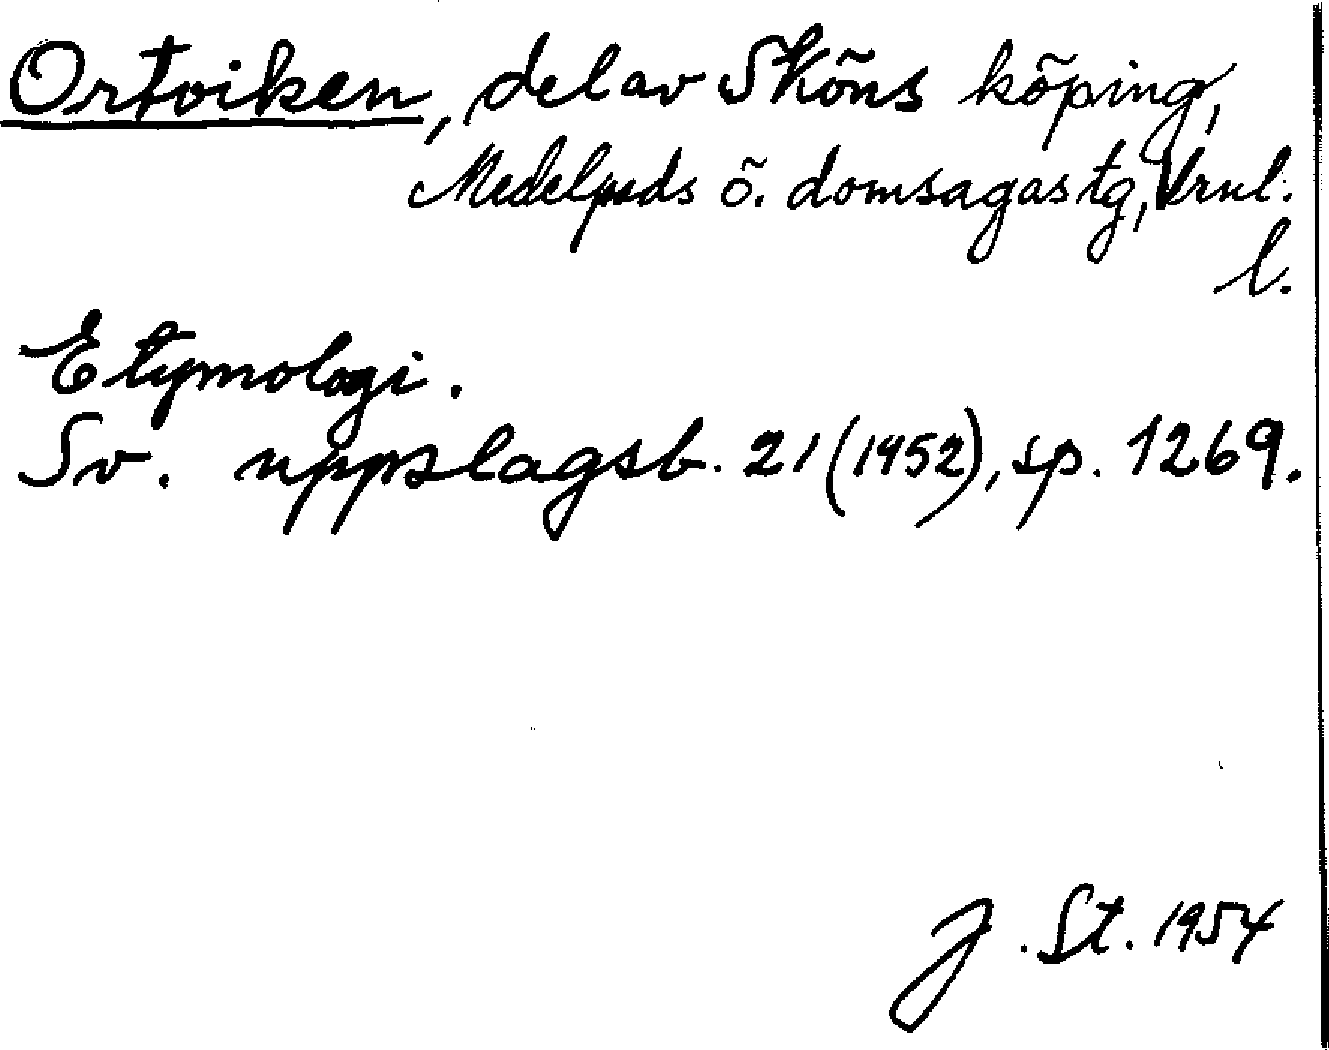 Ortviken, del av Sköns köping,
Medelpads ö. domsagas tg, Vrnl.
l.
Etymologi.
Sv. uppslagsb. 21 (1952), sp. 1269.
J. St. 1954